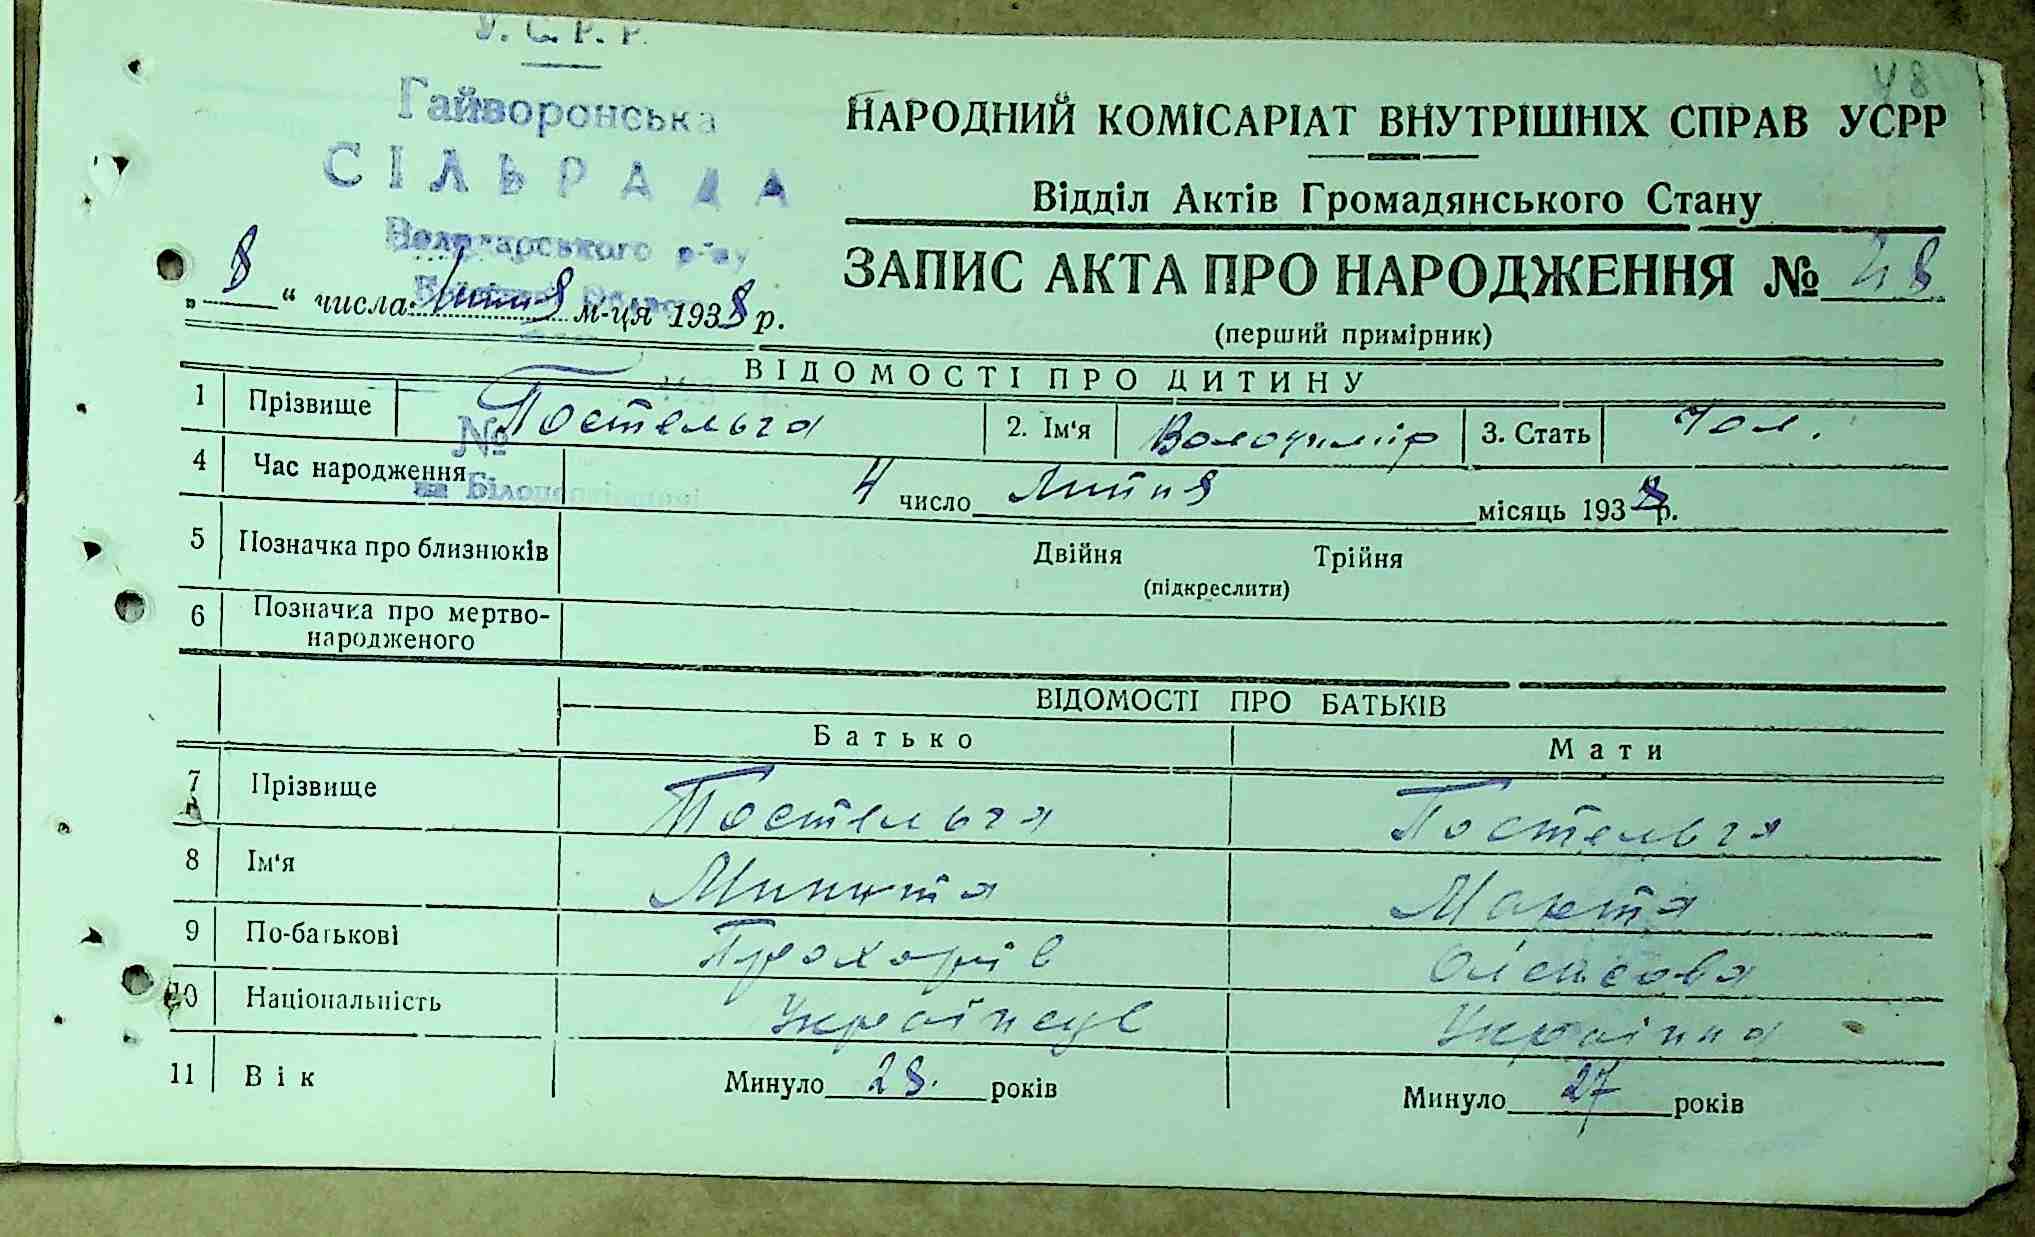 У. С. Р. Р.
48
Гайворонська
СІЛЬРАДА
Володарського р-ну
НАРОДНИЙ КОМІСАРІАТ ВНУТРІШНІХ СПРАВ УСРР
Відділ Актів Громадянського Стану
ЗАПИС АКТА ПРО НАРОДЖЕННЯ № 48
(перший примірник)
„ 8 “ числа Липня м-ця 1938 р.
ВІДОМОСТІ ПРО ДИТИНУ
1 Прізвище Постельга 2. Ім'я Володимір 3. Стать Чол.
№
4 Час народження 4 число Липня місяць 1938 р.
5 Позначка про близнюків Двійня Трійня
(підкреслити)
6 Позначка про мертво-
народженого
ВІДОМОСТІ ПРО БАТЬКІВ
Батько Мати
7 Прізвище Постельга Постельга
8 Ім'я Микита Марта
9 По-батькові Прохорів
10 Національність Українець Українка
11 Вік Минуло 28. років Минуло 27 років